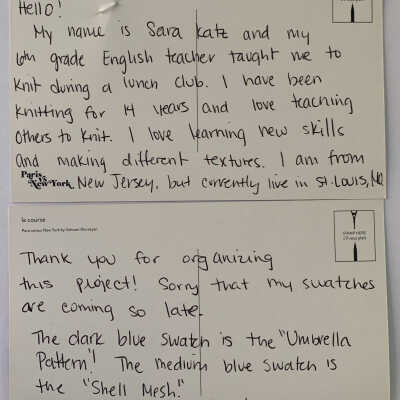 Hello!
My name is Sara Katz and my
6th grade English teacher taught me to
knit during a lunch club. I have been
knitting for 14 years and love teaching
others to knit. I love learning new skills
and making different textures. I am from
Paris vs New York New Jersey, but currently live in St. Louis, MO
le course
Paris versus New York by Vahram Muratyan
STAMP HERE
Thank you for organizing
this project! Sorry that my swatches
are coming so late.
The dark blue swatch is the "Umbrella
Pattern"! The medium blue swatch is
the "Shell Mesh."